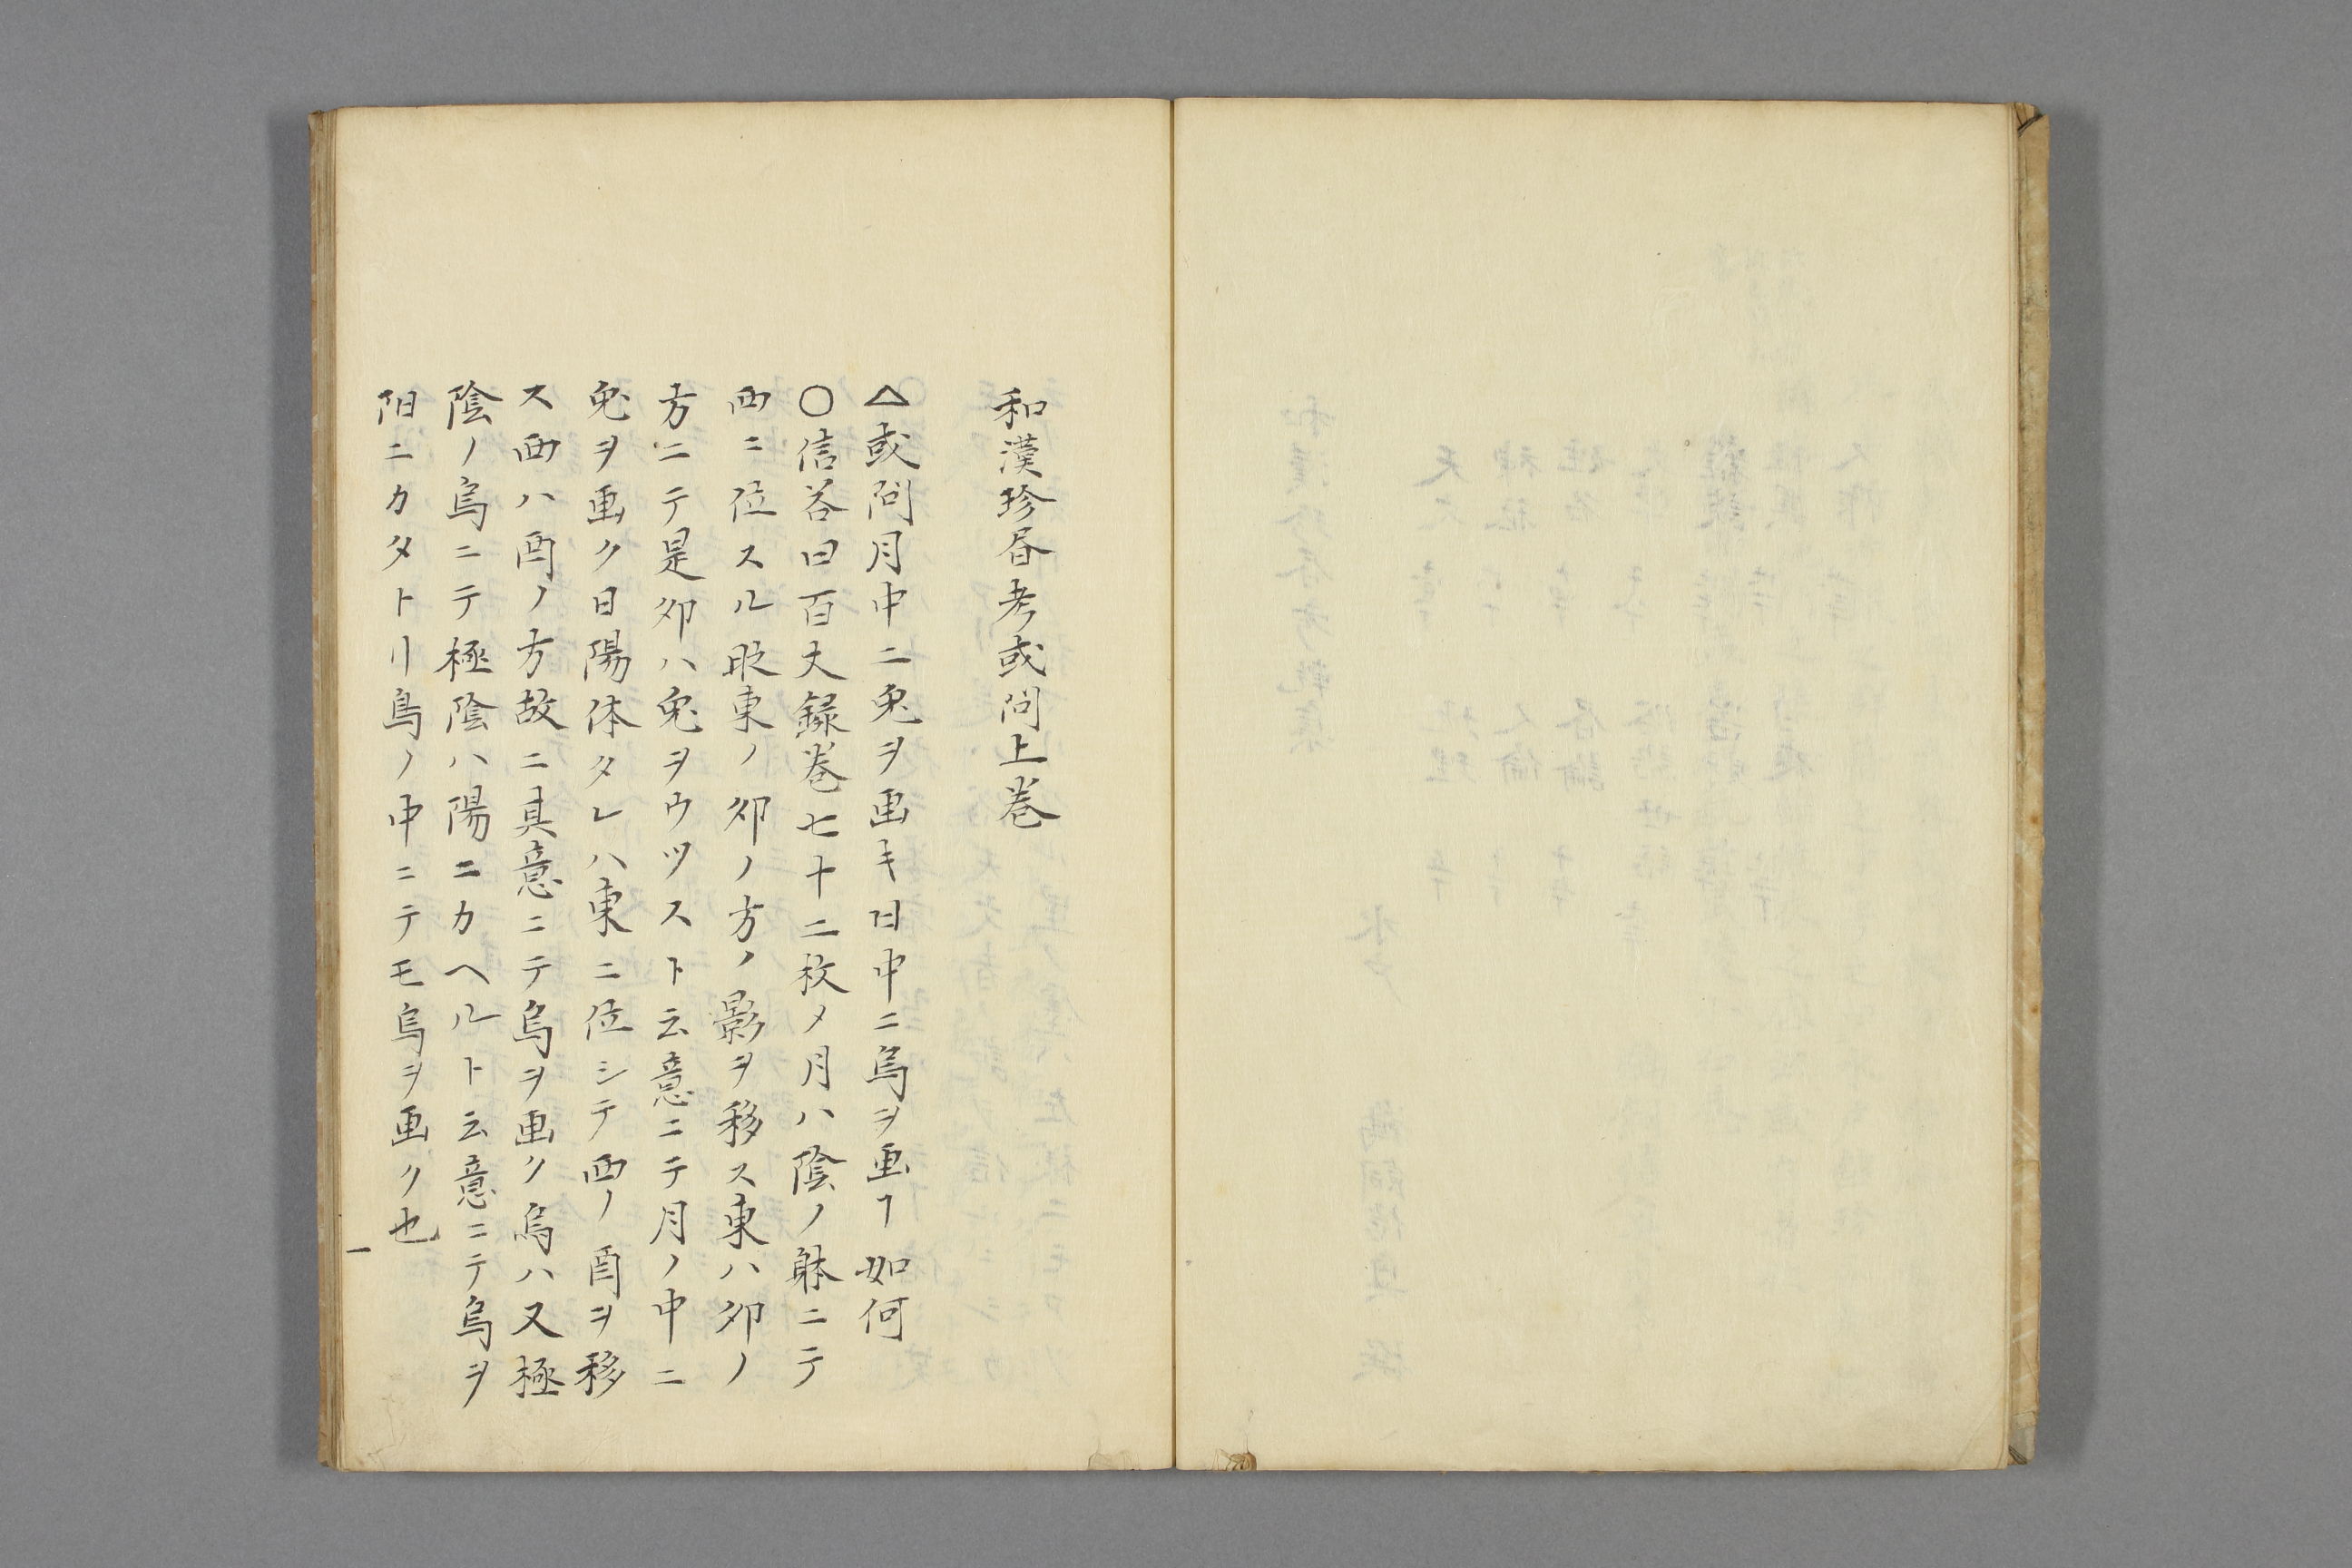 和漢珍昼考或問上巻
△或問月中ニ兔ヲ画キ日中ニ烏ヲ画ヿ如何
○信答曰百丈録巻七十二枚メ月ハ陰ノ躰ニテ
西ニ位スル故東ノ卯ノ方ノ影ヲ移ス東ハ卯ノ
方ニテ是卯ハ兔ヲウツスト云意ニテ月ノ中ニ
兔ヲ画ク日陽体タレハ東ニ位シテ西ノ酉ヲ移
ス西ハ酉ノ方故ニ其意ニテ烏ヲ画ク烏ハ又極
陰ノ烏ニテ極陰ハ陽ニカヘルト云意ニテ烏ヲ
阳ニカタトリ烏ノ中ニテモ烏ヲ画ク也
一